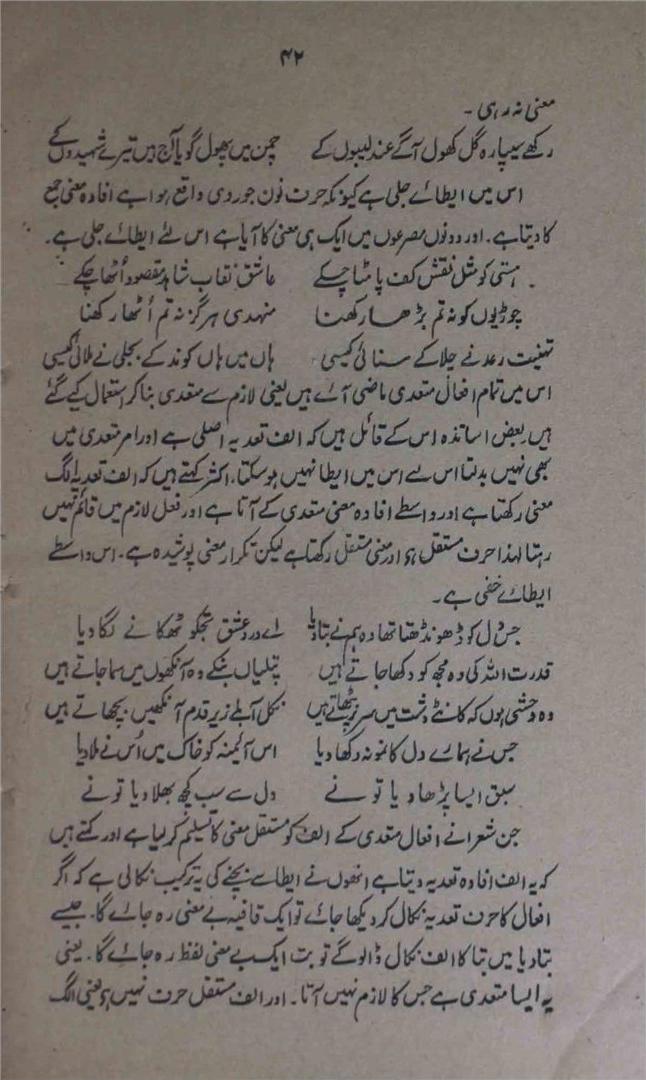 ۴۲
معنی نہ رہی ۔
رکھے سیپارہ گل کھول آگے عندلیبوں کے    چمن میں پھول گویا آج ہیں تیرے شہیدوں کے
اس میں ایطائے جلی ہے کیونکہ حرف نون جو روی واقع ہوا ہے افادہ معنی جمع
کا دیتا ہے ۔ اور دونوں مصرعوں میں ایک ہی معنی کا آیا ہے اس لئے ایطائے جلی ہے ۔
ہستی کو مثل نقش کف پا مٹا چکے    عاشق نقاب شاہد مقصود اُٹھا چکے
چوڑیوں کو نہ تم بڑھا رکھنا    منہدی ہرگز نہ تم اُٹھا رکھنا
تہنیت رعد نے چلا کے سنائی کیسی    ہاں میں ہاں کوند کے بجلی نے ملائی کیسی
اس میں تمام افعال متعدی ماضی آئے ہیں یعنی لازم سے متعدی بنا کر استعمال کیے گئے
ہیں بعض اساتذہ اس کے قائل ہیں کہ الف تعدیہ اصلی ہے اور امر متعدی میں
بھی نہیں بدلتا اس لیے اس میں ایطا نہیں ہو سکتا ۔ اکثر کہتے ہیں کہ الف تعدیہ الگ
معنی رکھتا ہے اور واسطے افادہ معنی متعدی کے آتا ہے اور فعل لازم میں قائم نہیں
رہتا لہذا حرف مستقل ہے اور معنی مستقل رکھتا ہے لیکن تکرار معنی پوشیدہ ہے ۔ اس واسطے
ایطائے خفی ہے ۔
جس دل کو ڈھونڈھتا تھا وہ ہم نے بتا دیا    اے درد عشق تجکو ٹھکانے لگا دیا
قدرت اللہ کی وہ مجھ کو دکھا جاتے ہیں    پتلیاں بنکے وہ آنکھوں میں سما جاتے ہیں
وہ وحشی ہوں کہ کانٹے دشت میں سر پر بٹھاتے ہیں    نکل آبلے زیر قدم آنکھیں بچھاتے ہیں
جس نے ہمارے دل کا نمونہ دکھا دیا    اس آئینہ کو خاک میں اُس نے ملا دیا
سبق ایسا پڑھا دیا تو نے    دل سے سب کچھ بھلا دیا تو نے
جن شعرا نے افعال متعدی کے الف کو مستقل معنی کا تسلیم کر لیا ہے اور کہتے ہیں
کہ یہ الف افادہ تعدیہ دیتا ہے انھوں نے ایطا سے بچنے کی یہ ترکیب نکالی ہے کہ اگر
افعال کا حرف تعدیہ نکال کر دیکھا جائے تو ایک قافیہ بے معنی رہ جائے گا ۔ جیسے
بتا دیا میں بتا کا الف نکال ڈالو گے تو بت ایک بے معنی لفظ رہ جائے گا ۔ یعنی
یہ ایسا متعدی ہے جس کا لازم نہیں آتا ۔ اور الف مستقل حرف نہیں ہے یعنی الگ